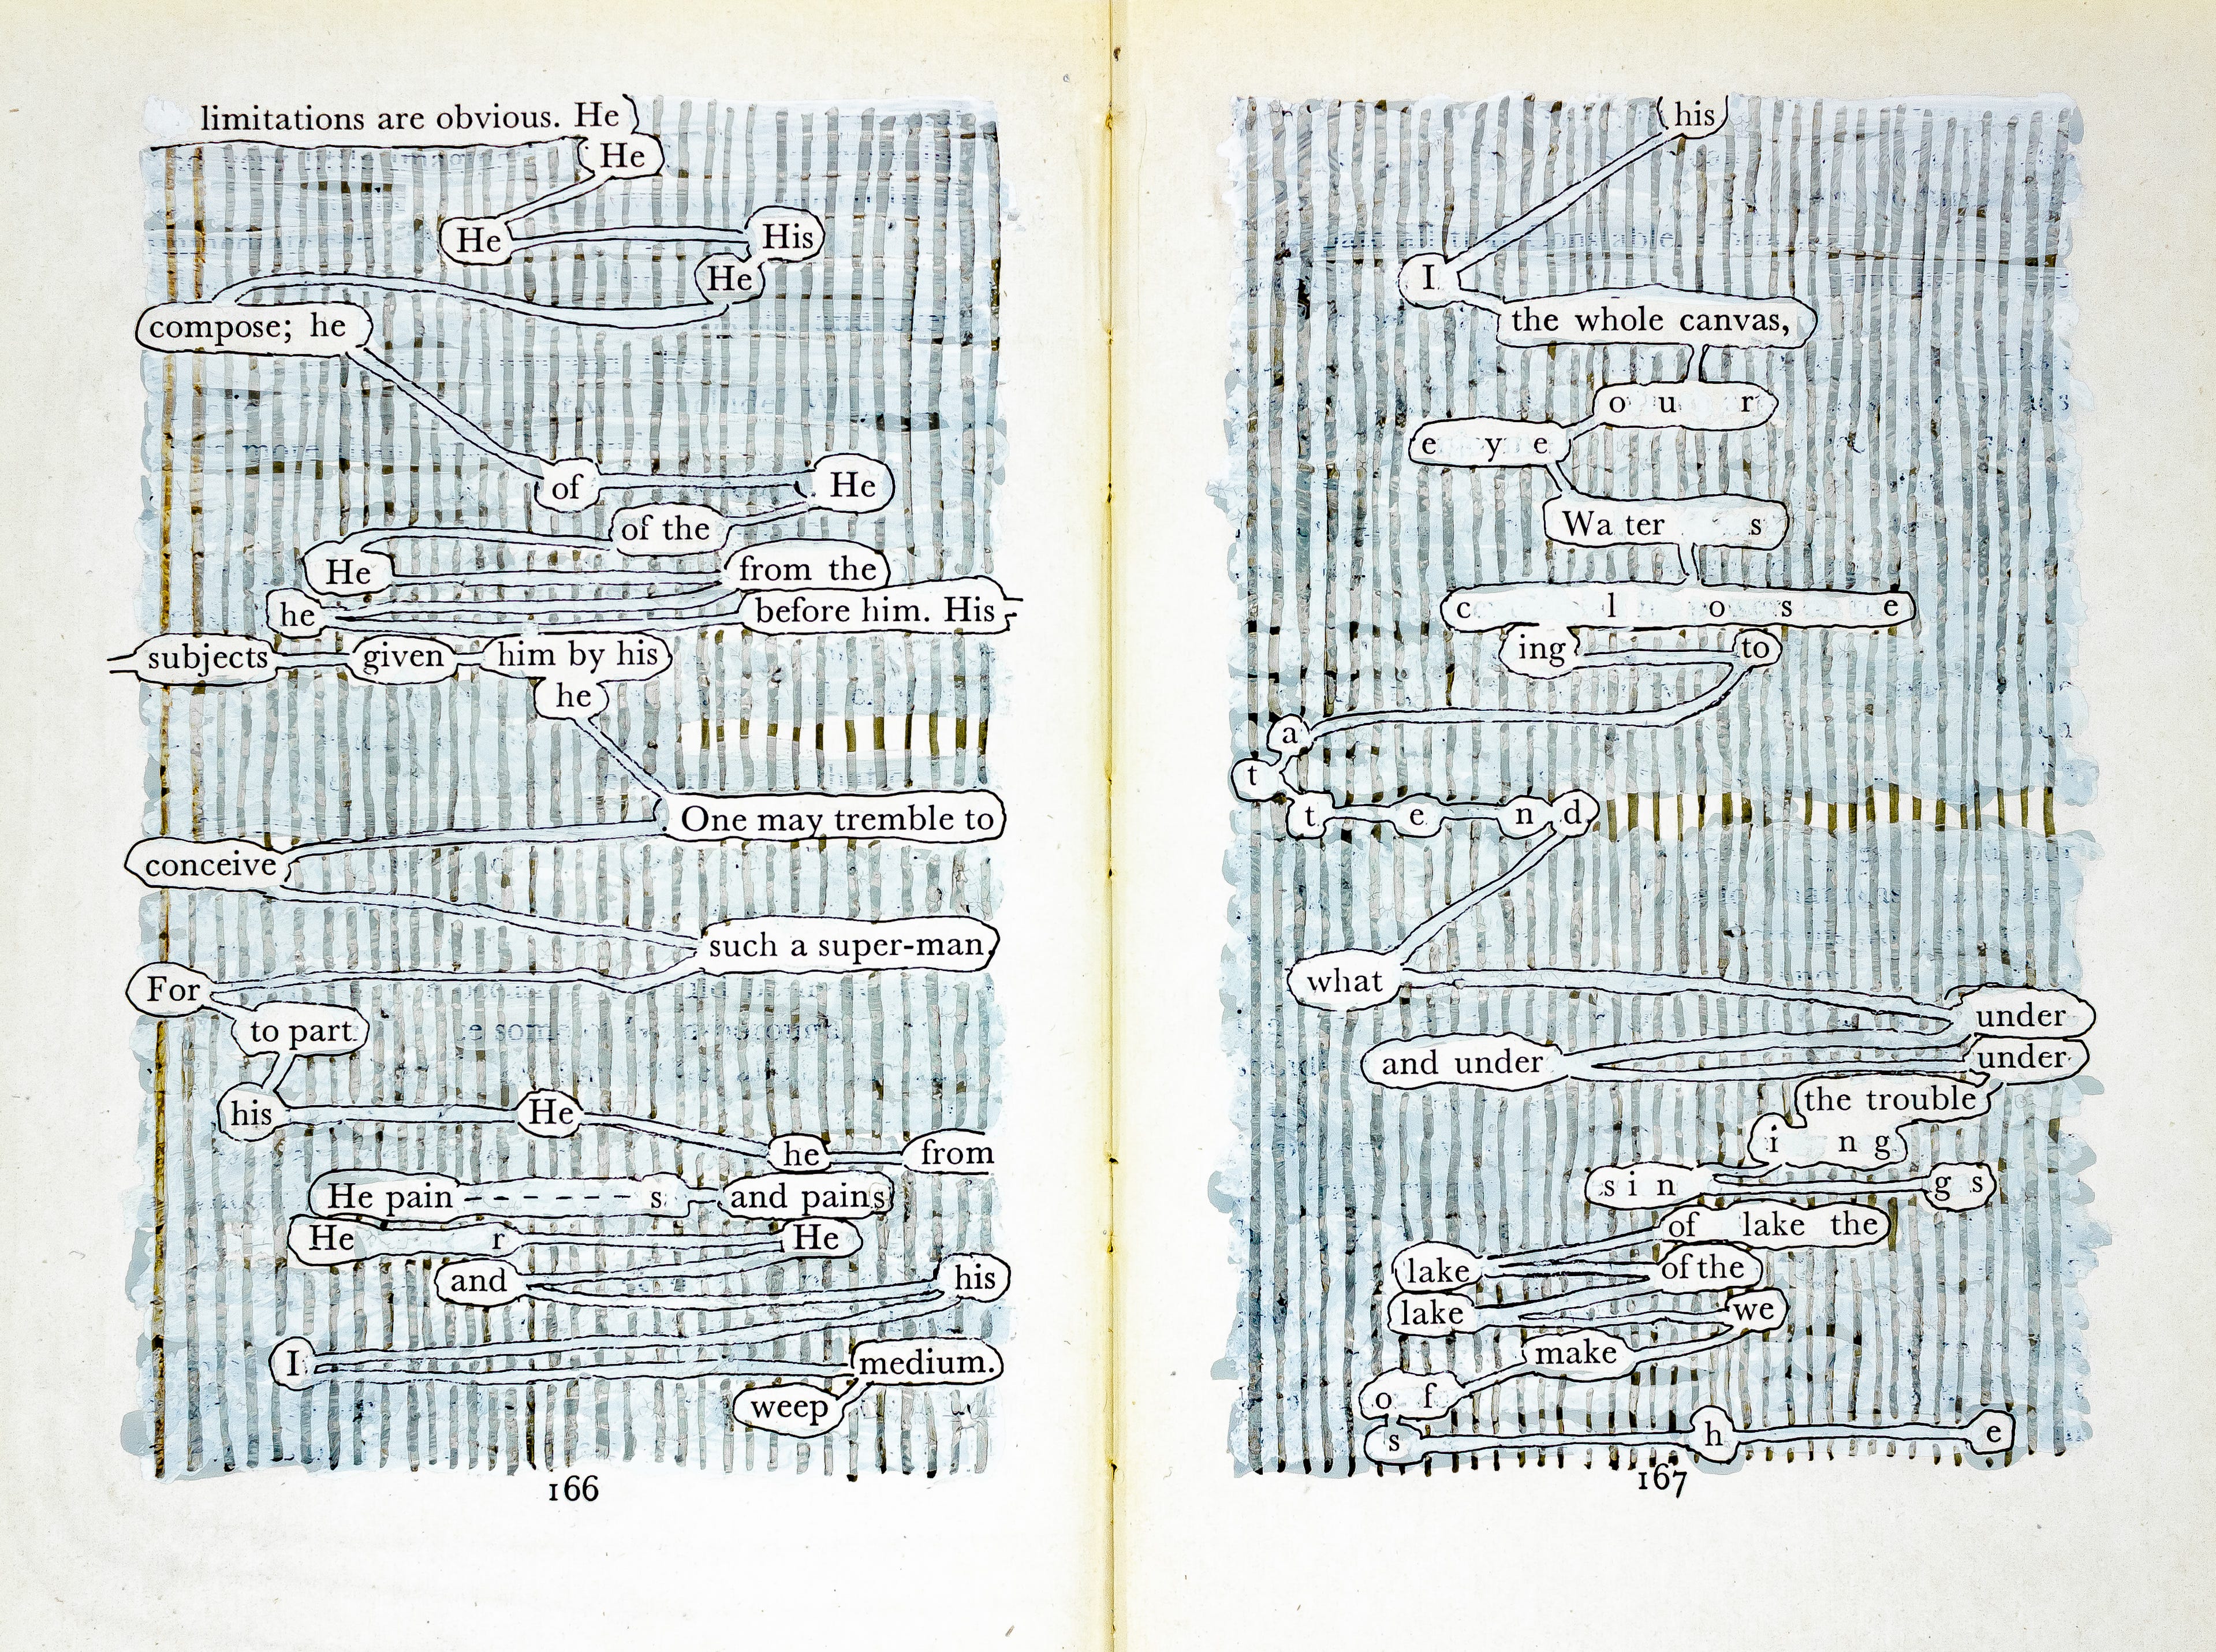 limitations are obvious. He
He
He His
He
compose; he
of He
of the
He from the
he before him. His
subjects given him by his
he
One may tremble to
conceive
such a super-man,
For
to part
his He
he from
He pain - - - - - - s and pains
He r He
and his
I medium.
weep
166
his
I
the whole canvas,
o u r
e y e
Wa ter s
c l o s e
ing to
a
t
t e n d
what
under
and under under
the trouble
i n g
s i n g s
of lake the
lake of the
lake we
make
o f
s h e
167